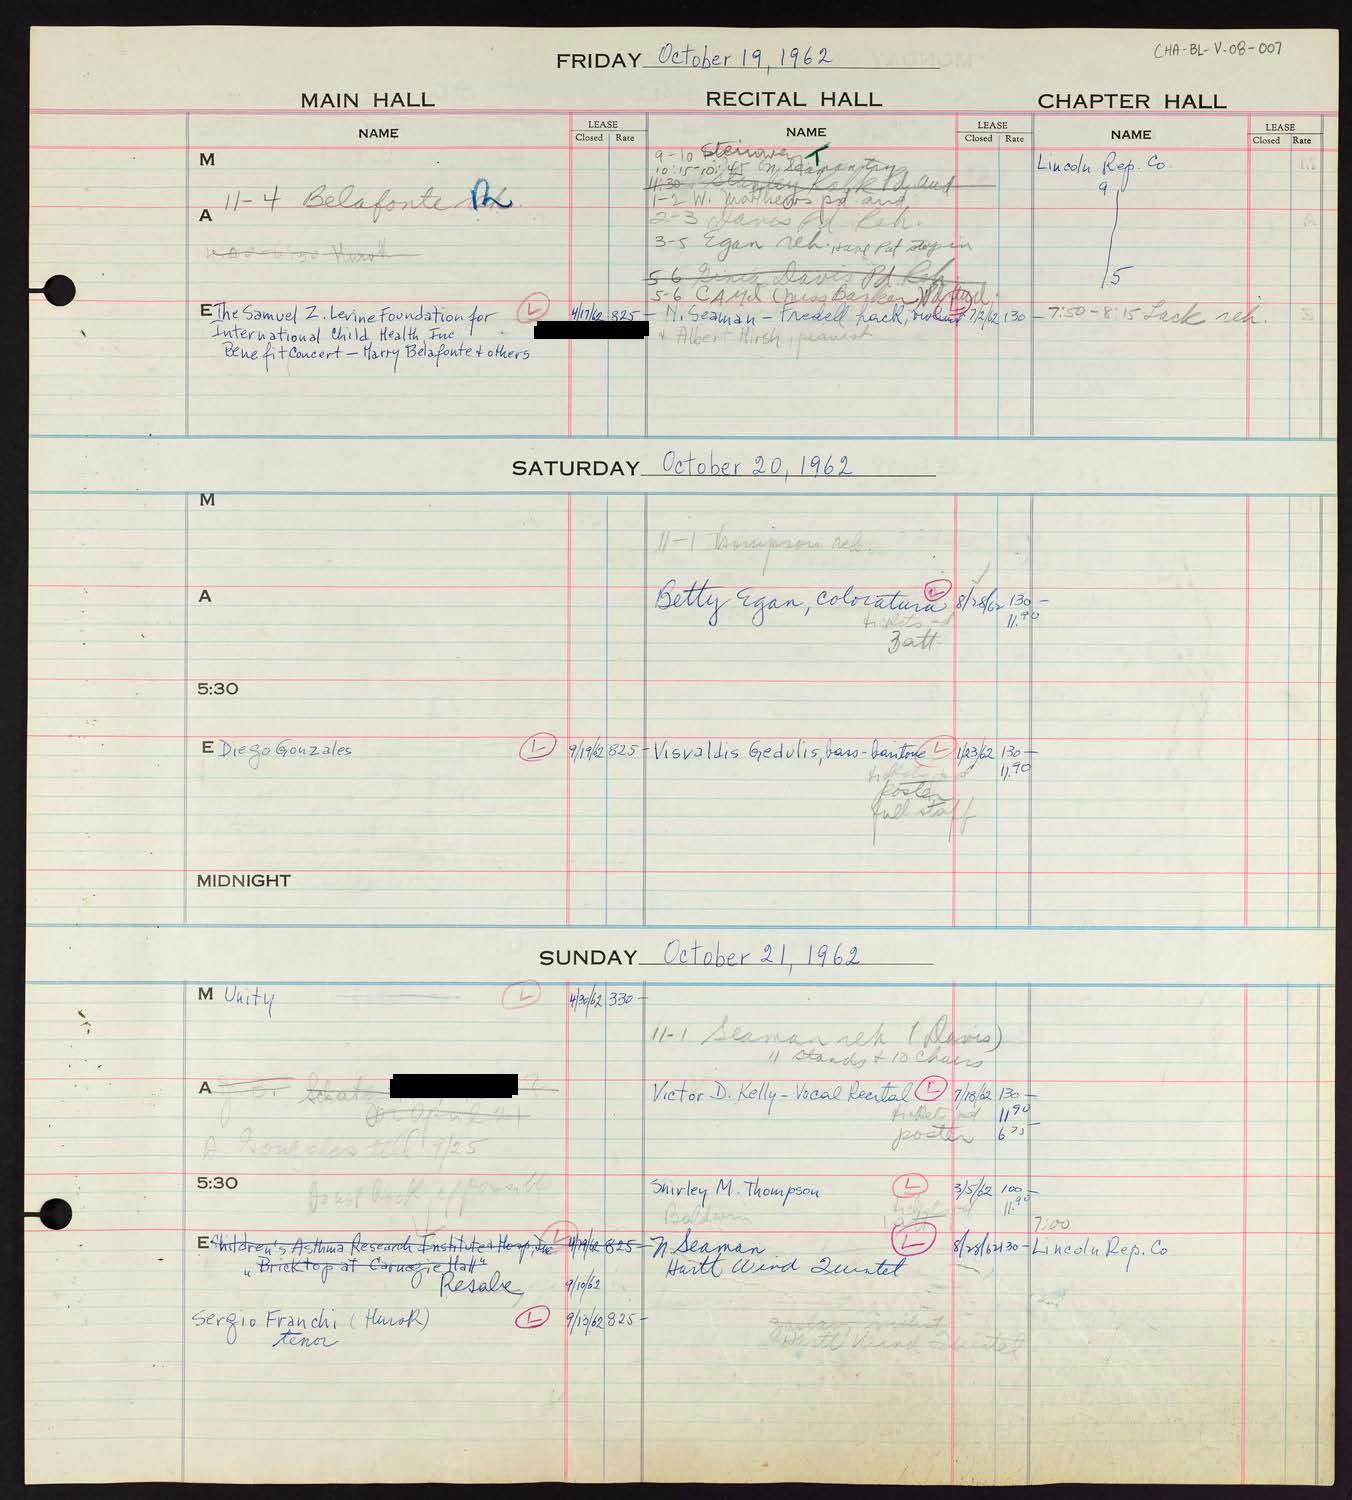 CHA-BL-V-08-007
FRIDAY October 19, 1962
MAIN HALL
RECITAL HALL
CHAPTER HALL
NAME
LEASE
Closed Rate
NAME
LEASE
Closed Rate
NAME
LEASE
Closed Rate
M
11-4 Belafonte
A
E The Samuel Z. Levine Foundation for
International Child Health Inc
Benefit Concert - Harry Belafonte & others
L
4/17/62 825-
9-10 Steinway T
10:15-10:45
11:30
1-2 W. Matthews pd. aud.
2-3 Davis Pd Reh.
3-5 Egan reh.
5-6 Davis Pd. Reh.
5-6 CAMI (Miss Barker)
N. Seaman -
7/2/62 130 -
& Albert Hirsh, pianist
Lincoln Rep. Co.
9
5
7:50-8:15 reh.
SATURDAY October 20, 1962
M
11-1 Thompson reh.
A
Betty Egan, coloratura L 8/28/62 130 -
11.90
5:30
E Diego Gonzales L 9/19/62 825-
Visvaldis Gedulis, bass-baritone L 1/23/62 130 -
11.90
poster
full staff
MIDNIGHT
SUNDAY October 21, 1962
M Unity L 4/30/62 330 -
11-1 Seaman reh (Davis)
11 stands & 10 chairs
A
Gonzales till 9/25
Victor D. Kelly - Vocal Recital L 7/18/62 130 -
11.90
poster
5:30
Shirley M. Thompson L 3/5/62 100 -
11.90
Baldwin
7:00
E Children's Asthma Research Institute & Hosp, Inc L 4/19/62 825-
"Bricktop at Carnegie Hall"
Resale 9/10/62
N Seaman L 8/28/62 130 -
Hartt Wind Quintet
Lincoln Rep. Co
Sergio Franchi (Hurok) L 9/13/62 825-
tenor
Hartt Wind Quintet